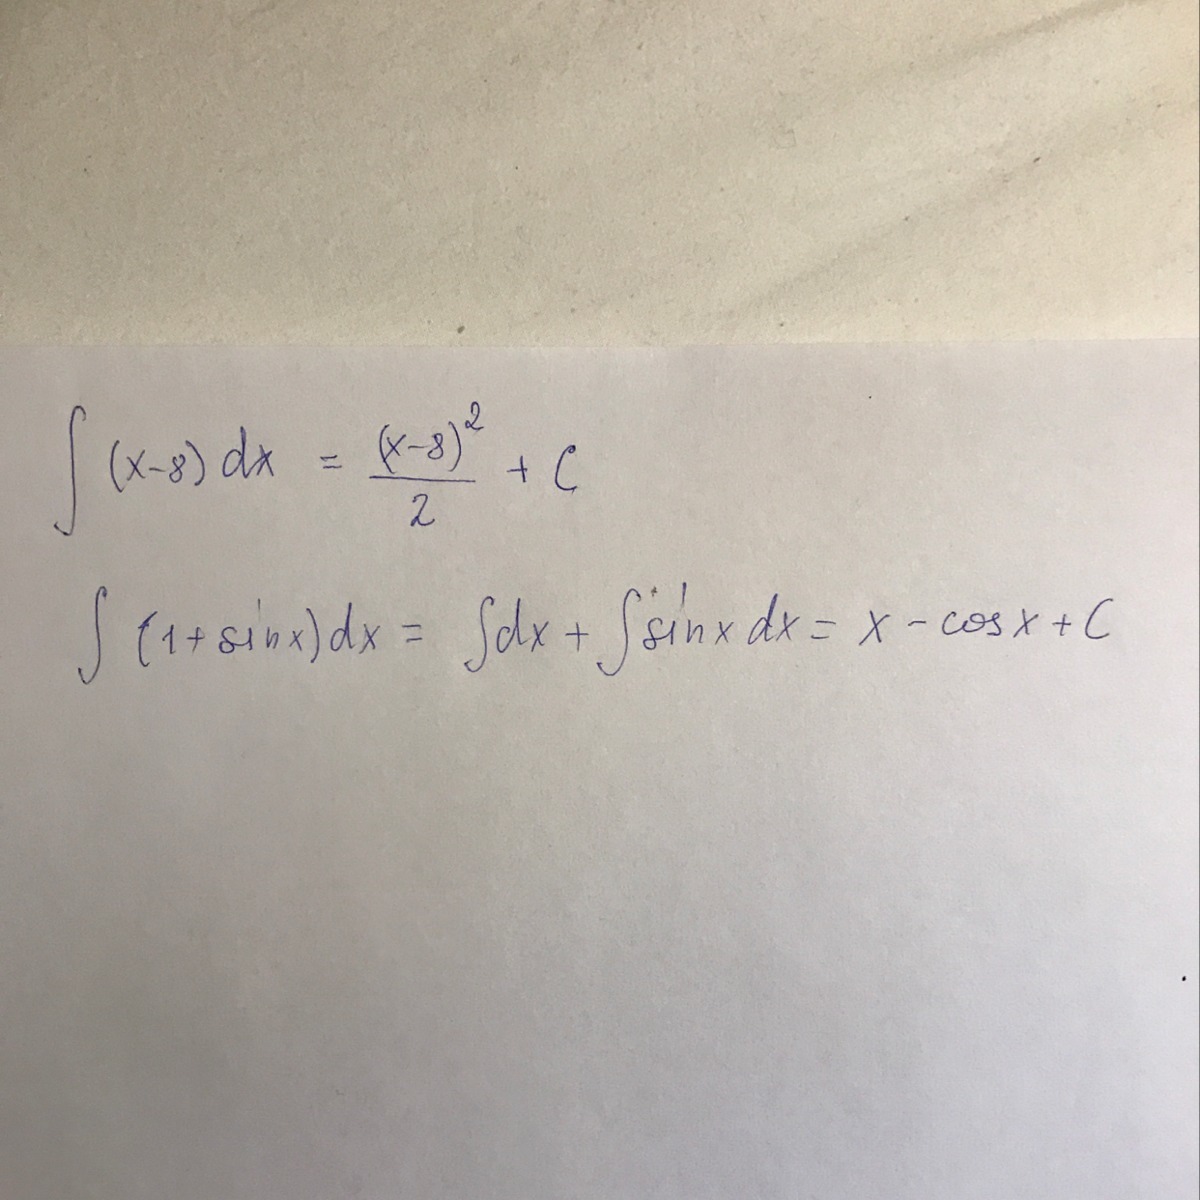 ∫(x-8)dx = (x-8)²/2 + C
∫(1+sinx)dx = ∫dx + ∫sinx dx = x - cosx + C